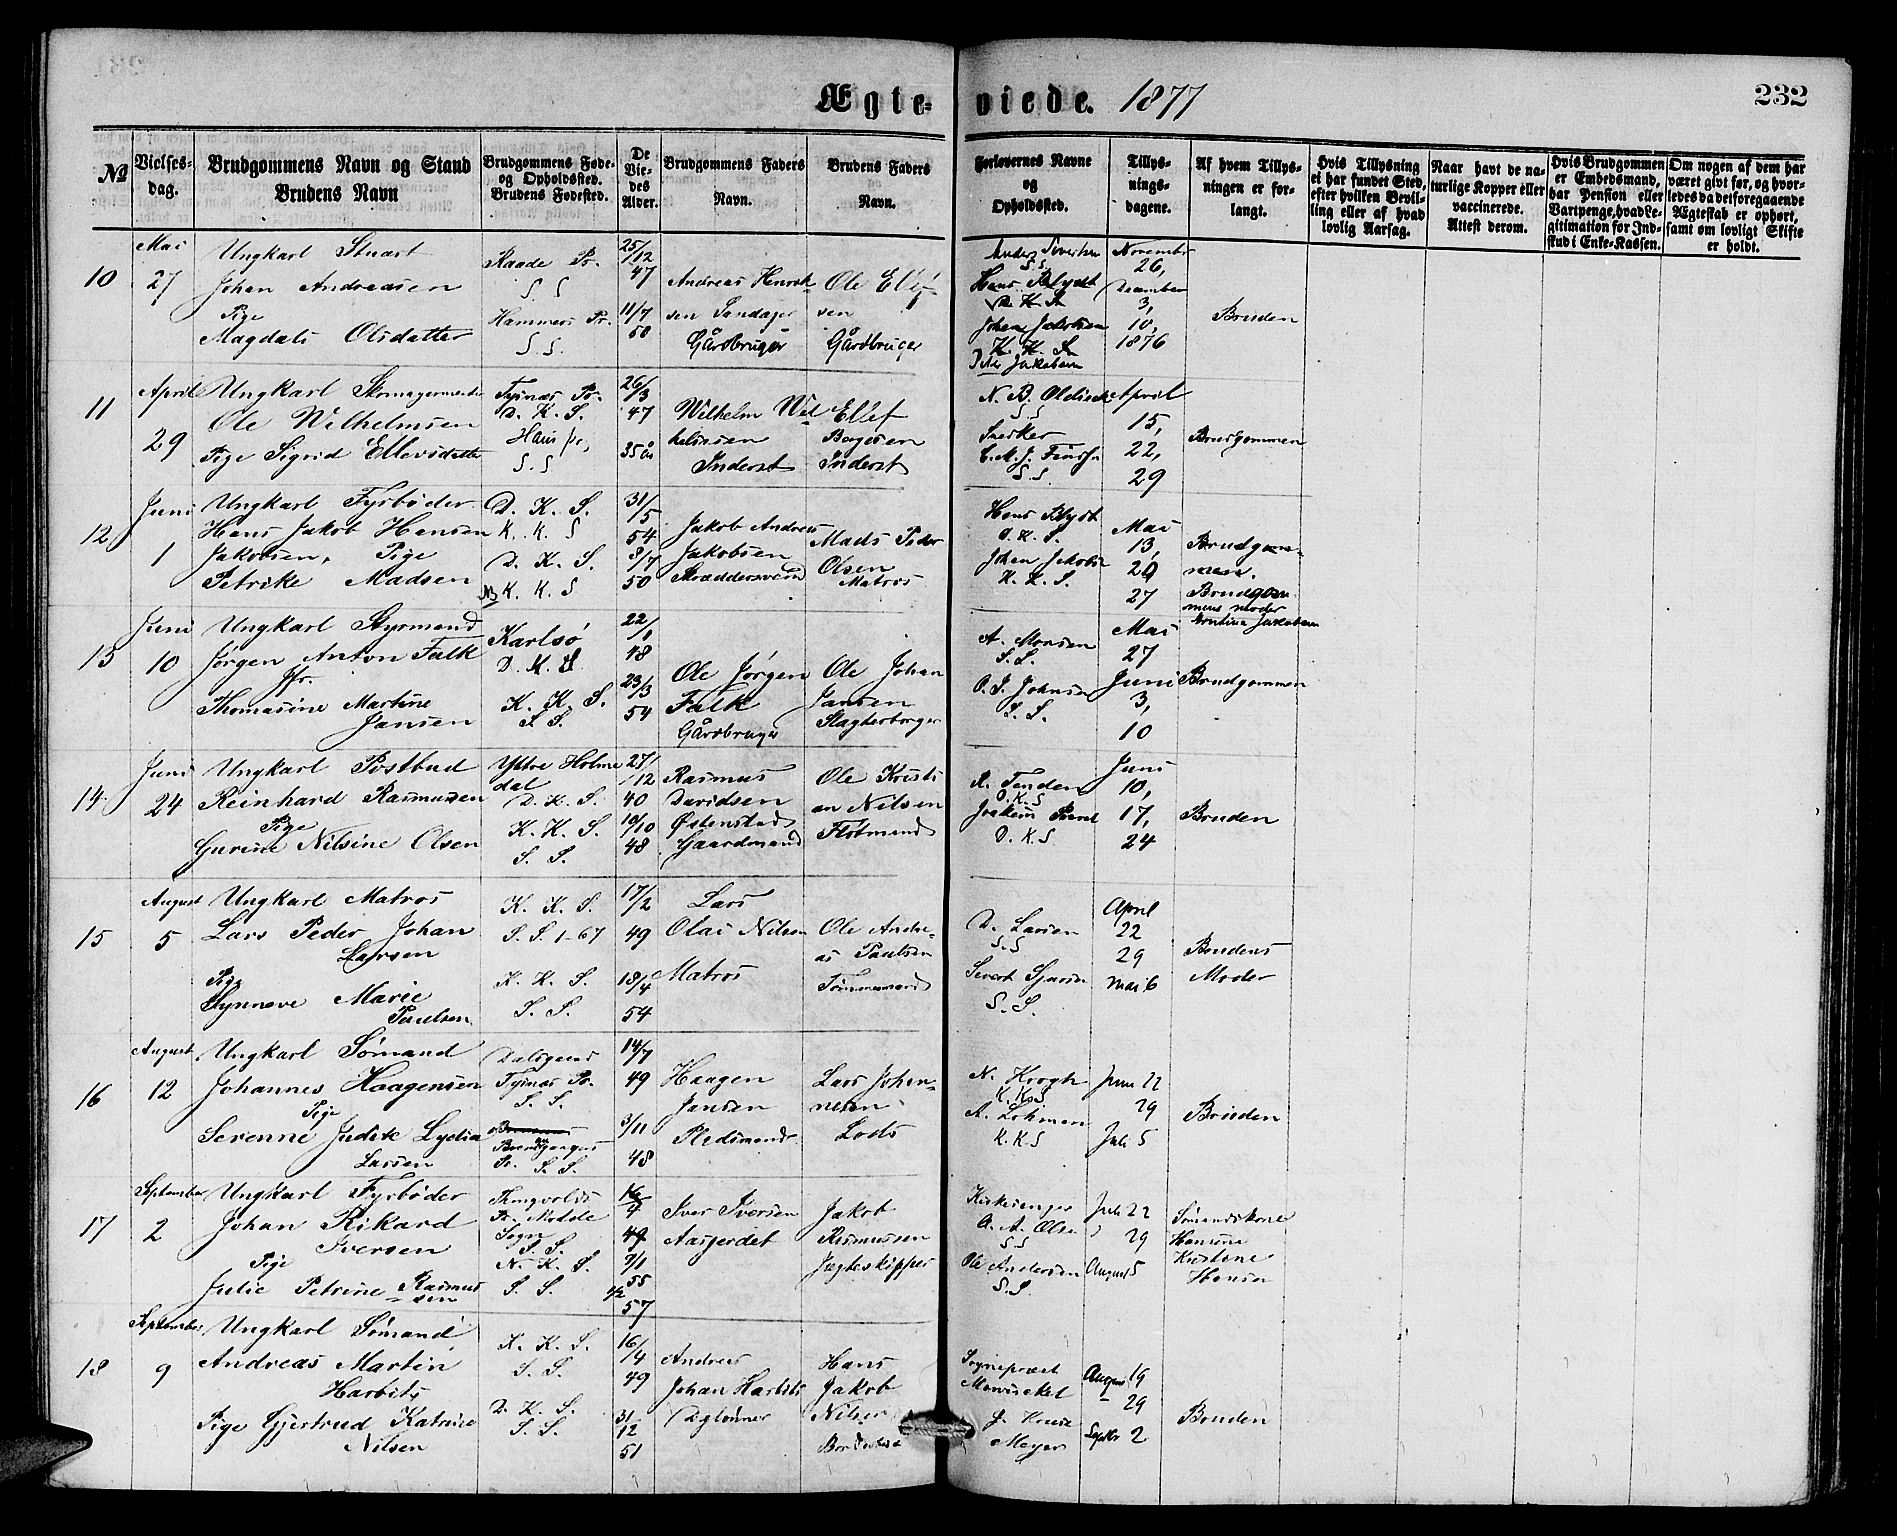 Ægte-viede. 1877
232
№
Vielses-
dag.
Brudgommens Navn og Stand
Brudens Navn
Brudgommens Føde-
og Opholdssted.
Brudens Fødested.
De
Vie-
des
Alder.
Brudgommens Faders
Navn.
Brudens Faders
Navn.
Forlovernes Navne
og
Opholdssted.
Tillys-
nings-
dagene.
Af hvem Tillys-
ningen er for-
langt.
Hvis Tillysning
ei har fundet Sted,
efter hvilken Bevil-
ling eller af hvad
lovlig Aarsag.
Naar havt de na-
turlige Kopper eller
vaccinerede.
Attest derom.
Hvis Brudgommen
er Embedsmand,
har Pension eller
Vartpenge, hvad Le-
gitimation for Ind-
skud i Enke-Kassen.
Om nogen af dem har
været givt før, og hvor-
ledes da det foregaaende
Ægteskab er ophørt,
samt om lovligt Skifte
er holdt.
10
Mai
27
Ungkarl Stuart
Johan Andreasen
Pige
Magdali Olsdatter
Raade Pr.
S. S
Hammers Pr.
S. S.
25/12
47
11/7
58
Andreas Henrik-
sen Sandager
Gårdbruger
Ole Ellef-
sen
Gårdbruger
Anders Sivertsen
S. S.
Hans Blydt
D. K. S.
Johan Jakobsen
K. K. S.
November
26,
December
3,
10,
1876
Bruden
11
April
29
Ungkarl Skomagermester
Ole Wilhelmsen
Pige Sigrid Ellevsdatter
Tysnæs Pr.
D. K. S.
Haus Pr,
S. S
26/3
47
35 år
Wilhelm Wil-
helmsen
Inderst
Ellef
Bagesen
Inderst
N. B.
S. S
Snedker
S. S
April
15,
22,
29
Brudgommen
12
Juni
1
Ungkarl Fyrbøder
Hans Jakob Hansen
Jakobsen, Pige
Petrike Madsen
D. K. S.
K. K. S
D. K. S.
K. K. S
31/5
54
8/7
50
Jakob Andreas
Jakobsen
Skræddersvend
Mads Peder
Olsen
Matros
Hans Blydt
D. K. S.
Johan Jakobsen
K. K. S.
Mai
13,
20
27
Brudgom-
men.
Brudgom-
mens moder
Jakobsen
13
Juni
10
Ungkarl Styrmand
Jørgen Anton Falk
Jfr.
Thomasine Martine
Jansen
Karlsø
D. K. S.
K. K. S
S. S.
22/1
48
23/3
54
Ole Jørgen
Falk
Gårdbruger
Ole Johan
Jansen
Slagterborger
A. Monsen
S. S.
O. J. Johnsen
S. S.
Mai
27
Juni
3,
10
Brudgommen
14
Juni
24
Ungkarl Postbud
Reinhard Rasmussen
Pige
Gurine Nilsine Olsen
Yttre Holme
dal
D. K. S.
K. K. S.
S. S.
27/12
40
10/10
48
Rasmus
Davidsen
Østenstad
Gaardmand
Ole Kristi
an Nilsen
Flotmand
R. Tenden
D. K. S
Joakim
D. K. S
Juni
10,
17,
24
Bruden
15
August
5
Ungkarl Matros
Lars Peder Johan
Larsen
Pige
Synneve Marie
Paulsen
K. K. S.
S. S. 1-67
K. K. S.
S. S.
17/2
49
18/4
54
Lars
Olai Nilsen
Matros
Ole Andre-
as Paulsen
Tømmermand
D. Larsen
S. S
Sivert
S. S.
April
22
29
mai 6
Brudens
Moder
16
August
12
Ungkarl Sømand
Johannes Haagensen
Pige
Serenne Judik Lydia
Larsen
Dalegaard
Tysnæs Pr.
S. S.
Pr. S. S.
14/7
49
3/11
48
Haagen
Jansen
Pladsmand
Lars Johan-
nesen
Lods
N. Krogh
K. K. S
A. Lohman
K. K. S
Juni 22
29
Juli 5
Bruden
17
September
2
Ungkarl Fyrbøder
Johan Rikard
Iversen
Pige
Julie Petrine Rasmus
sen
Thingvolds
Pr. Modde
Sogn
S. S.
N. K. S.
S. S.
49
9/1
55
1/2
57
Iver Iversen
Aasjerdet
Jakob
Rasmussen
Jægteskipper
Kirkesanger
A. A. Olsen
S. S
Ole Andersen
S. S.
Juli 22
29
August 5
Sømandskone
Hansine
Kristine
Hansen
18
September
9
Ungkarl Sømand
Andreas Martin
Harbits
Pige Gjertrud Katrine
Nilsen
K. K. S.
S. S.
D. K. S.
S. S.
16/4
49
31
12
51
Andreas
Johan Harbits
Dagløner
Hans
Jakob
Nilsen
Sognepræst
J. Knud
Meyer
August 19
29
Septbr 2
Bruden